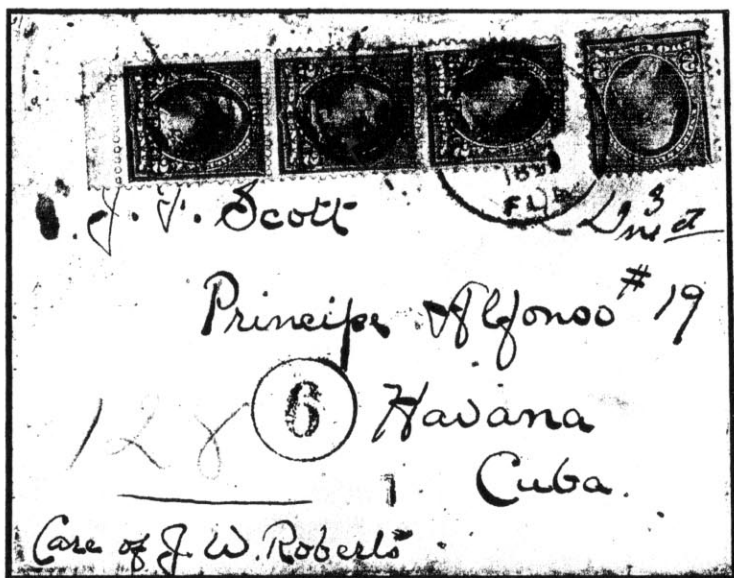 J. F. Scott
Principe Alfonso # 19
6
Havana
128
Cuba.
Care of J. W. Roberts